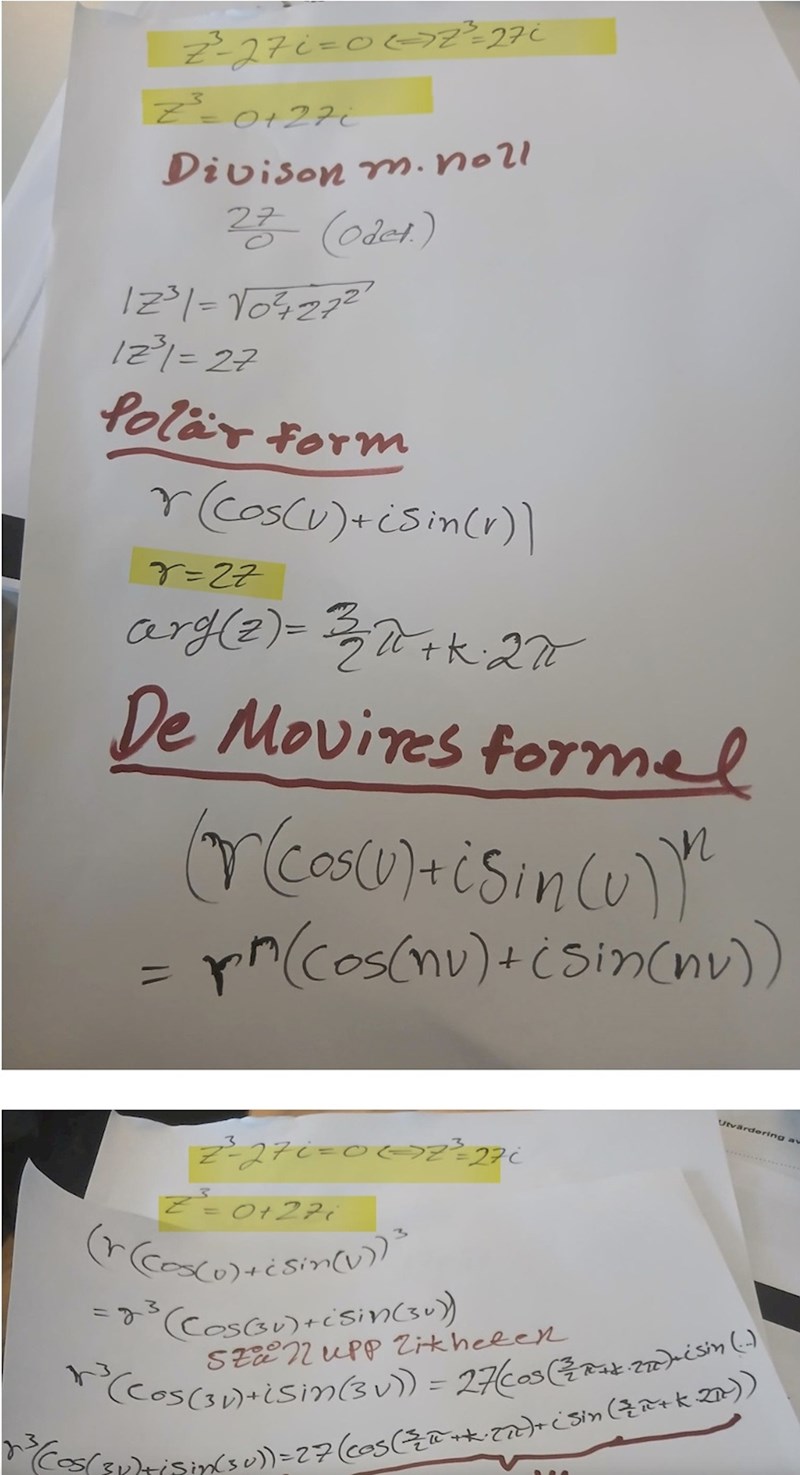 z³-27i=0 <=> z³=27i
z³=0+27i
Divison m. noll
27/0 (odef.)
|z³|=√(0²+27²)
|z³|=27
Polär form
r(cos(v)+isin(v))
r=27
arg(z)=3/2π+k·2π
De Movires formel
(r(cos(v)+isin(v))ⁿ
=rⁿ(cos(nv)+isin(nv))
Utvärdering av
z³-27i=0 <=> z³=27i
z³=0+27i
(r(cos(v)+isin(v))³
=r³(cos(3v)+isin(3v))
Ställ upp likheten
r³(cos(3v)+isin(3v))=27(cos(3/2π+k·2π)+isin(..)
r³(cos(3v)+isin(3v))=27(cos(3/2π+k·2π)+isin(3/2π+k·2π))